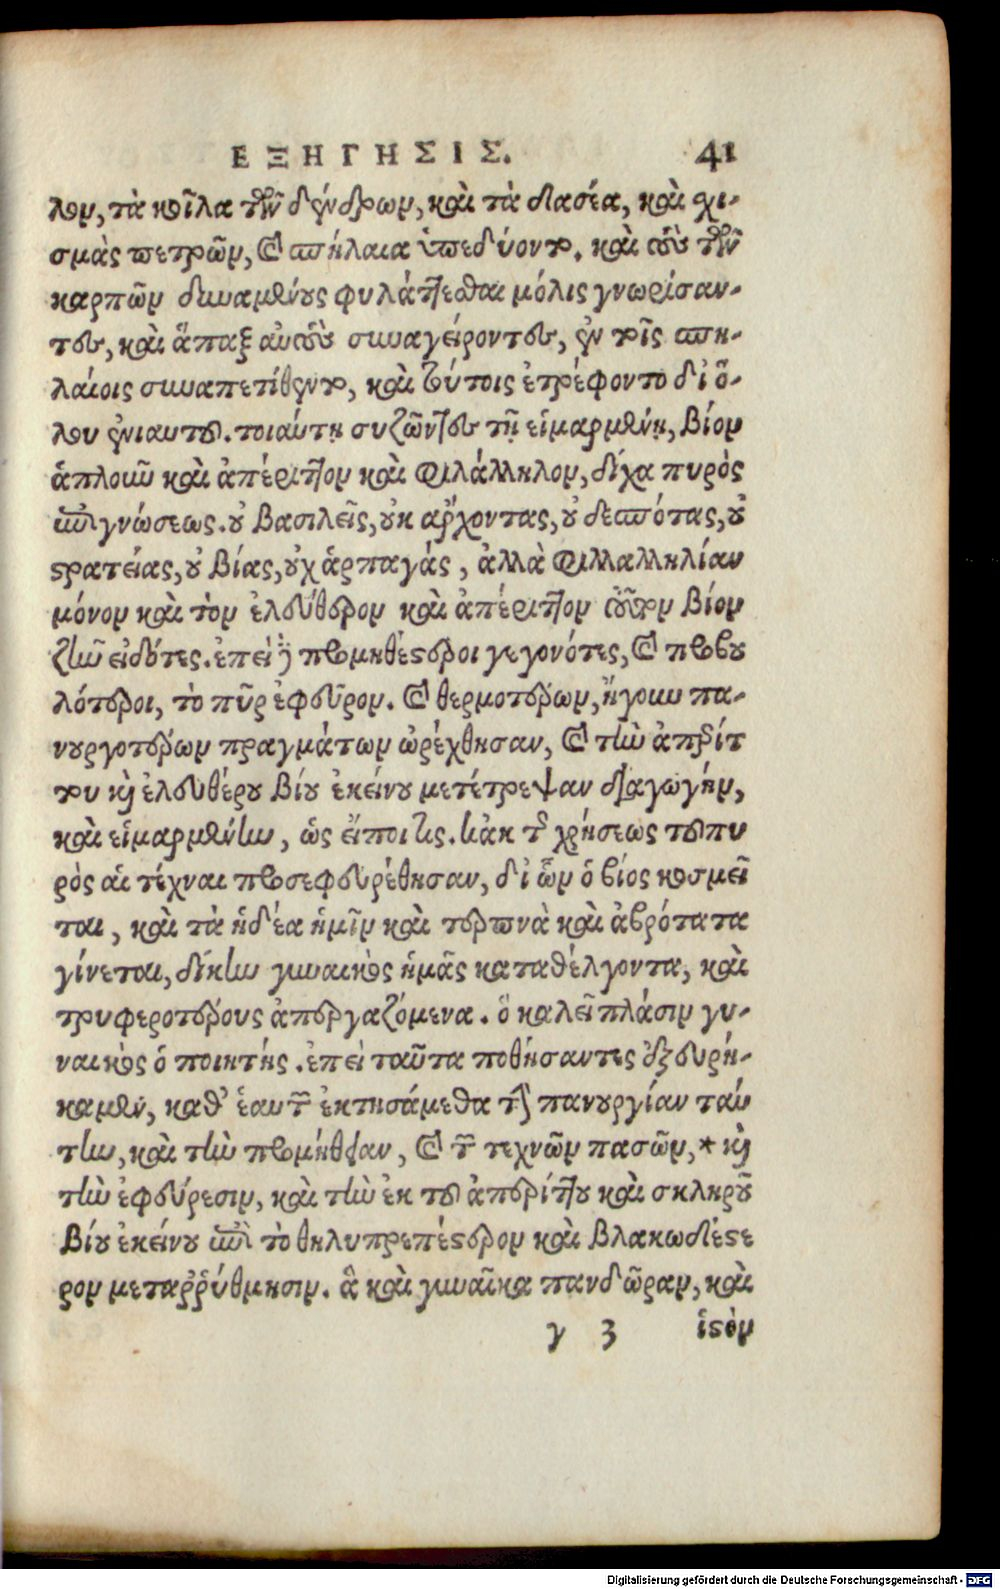 ΕΞΗΓΗΣΙΣ. 41
λον, τὰ κοῖλα τῶν δένδρων, καὶ τὰ δασέα, καὶ σχι-
σμὰς πετρῶν, καὶ σπήλαια ὑπεδύοντο. καὶ τοὺς τῶν
καρπῶν δυναμένους φυλάττεσθαι μόλις γνωρίσαν-
τες, καὶ ἅπαξ αὐτοὺς συναγείροντες, ἐν τοῖς σπη-
λαίοις συναπετίθεντο, καὶ τούτοις ἐτρέφοντο δι' ὅ-
λου ἐνιαυτοῦ. τοιαύτῃ συζῶντες τῇ εἱμαρμένῃ, βίον
ἁπλοῦν καὶ ἀπέριττον καὶ φιλάλληλον, δίχα πυρὸς
ἐπιγνώσεως. οὐ βασιλεῖς, οὐκ ἄρχοντας, οὐ δεσπότας, οὐ
στρατείας, οὐ βίας, οὐχ ἁρπαγάς, ἀλλὰ φιλλαλληλίαν
μόνον καὶ τὸν ἐλεύθερον καὶ ἀπέριττον τοῦτον βίον
ζῆν εἰδότες. ἐπεὶ δὲ προμηθέστεροι γεγονότες, καὶ προβου
λότεροι, τὸ πῦρ ἐφεῦρον. καὶ θερμοτέρων, ἤγουν πα-
νουργοτέρων πραγμάτων ὠρέχθησαν, καὶ τὴν ἀπερίτ
του καὶ ἐλευθέρου βίου ἐκείνου μετέτρεψαν διαγωγήν,
καὶ εἱμαρμένην, ὡς εἴποι τις. κἀκ τῆς χρήσεως τοῦ πυ
ρὸς αἱ τέχναι προσεφευρέθησαν, δι' ὧν ὁ βίος κοσμεῖ
ται, καὶ τὰ ἡδέα ἡμῖν καὶ τερπνὰ καὶ ἁβρότατα
γίνεται, δίκην γυναικὸς ἡμᾶς καταθέλγοντα, καὶ
τρυφεροτέρους ἀπεργαζόμενα. ὃ καλεῖ πλάσιν γυ-
ναικὸς ὁ ποιητής. ἐπεὶ ταῦτα ποθήσαντες ἐξευρή-
καμεν, καθ' ἑαυτῶν ἐκτησάμεθα τὴν πανουργίαν ταύ
την, καὶ τὴν προμήθειαν, καὶ τῶν τεχνῶν πασῶν, * καὶ
τὴν ἐφεύρεσιν, καὶ τὴν ἐκ τοῦ ἀπερίττου καὶ σκληροῦ
βίου ἐκείνου ἐπὶ τὸ θηλυπρεπέστερον καὶ βλακωδέστε
ρον μεταρρύθμησιν. ἃ καὶ γυναῖκα πανδῶραν, καὶ
γ 3 ἱστὸν
Digitalisierung gefördert durch die Deutsche Forschungsgemeinschaft - DFG